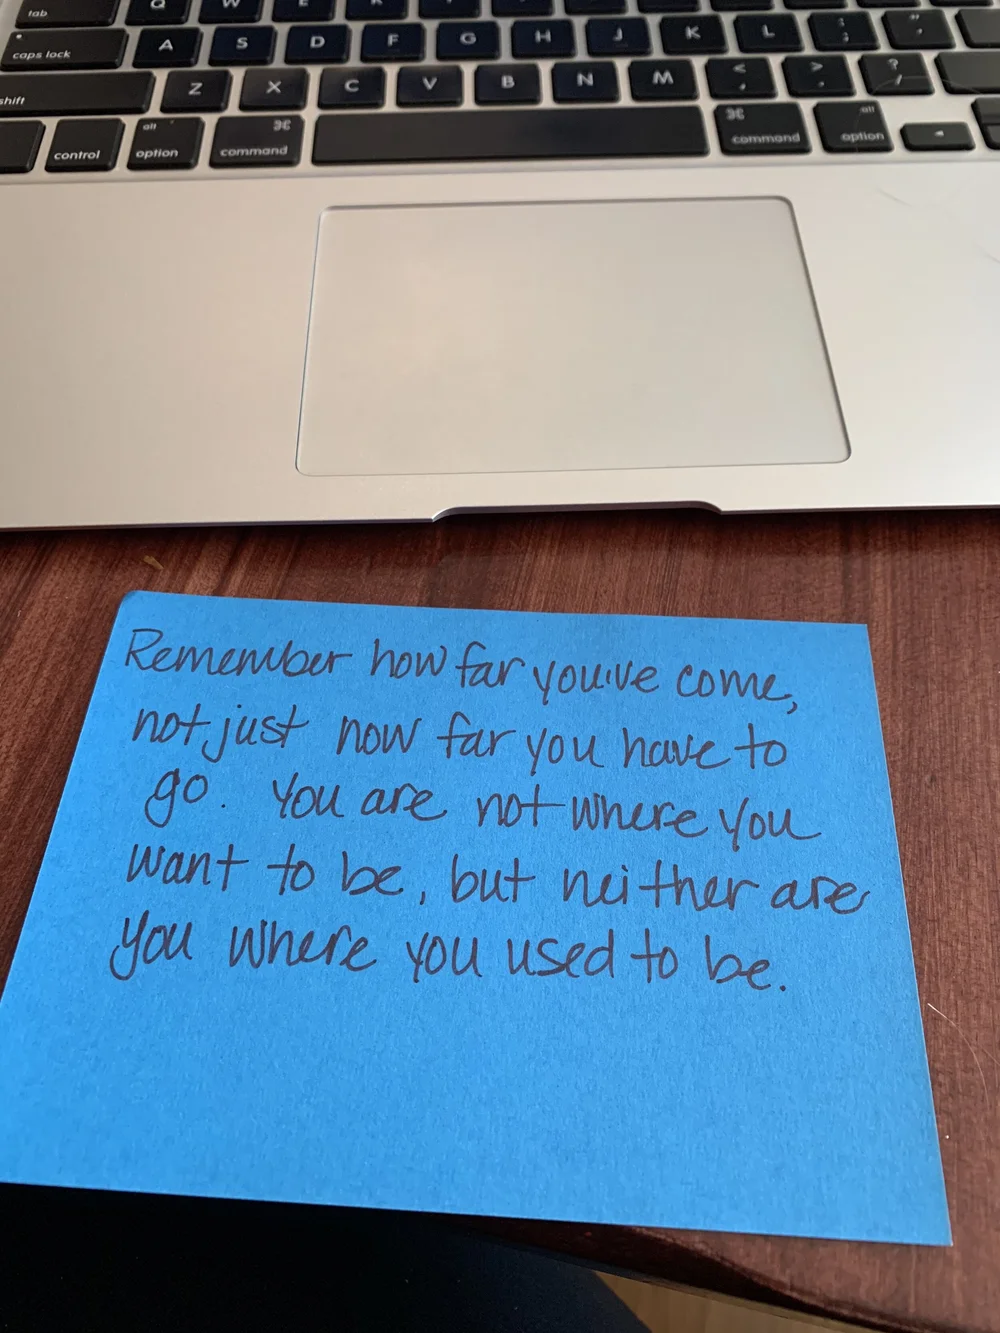 tab Q W E
caps lock A S D F G H J K L : ; " '
shift Z X C V B N M < , > . ? /
control alt option ⌘ command ⌘ command alt option
Remember how far you've come,
not just now far you have to
go. You are not where you
want to be, but neither are
you where you used to be.